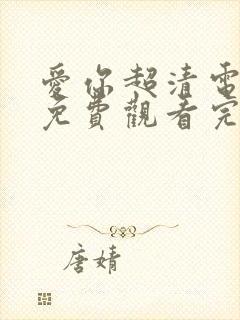 愛你超清電
免費觀看完
唐婧